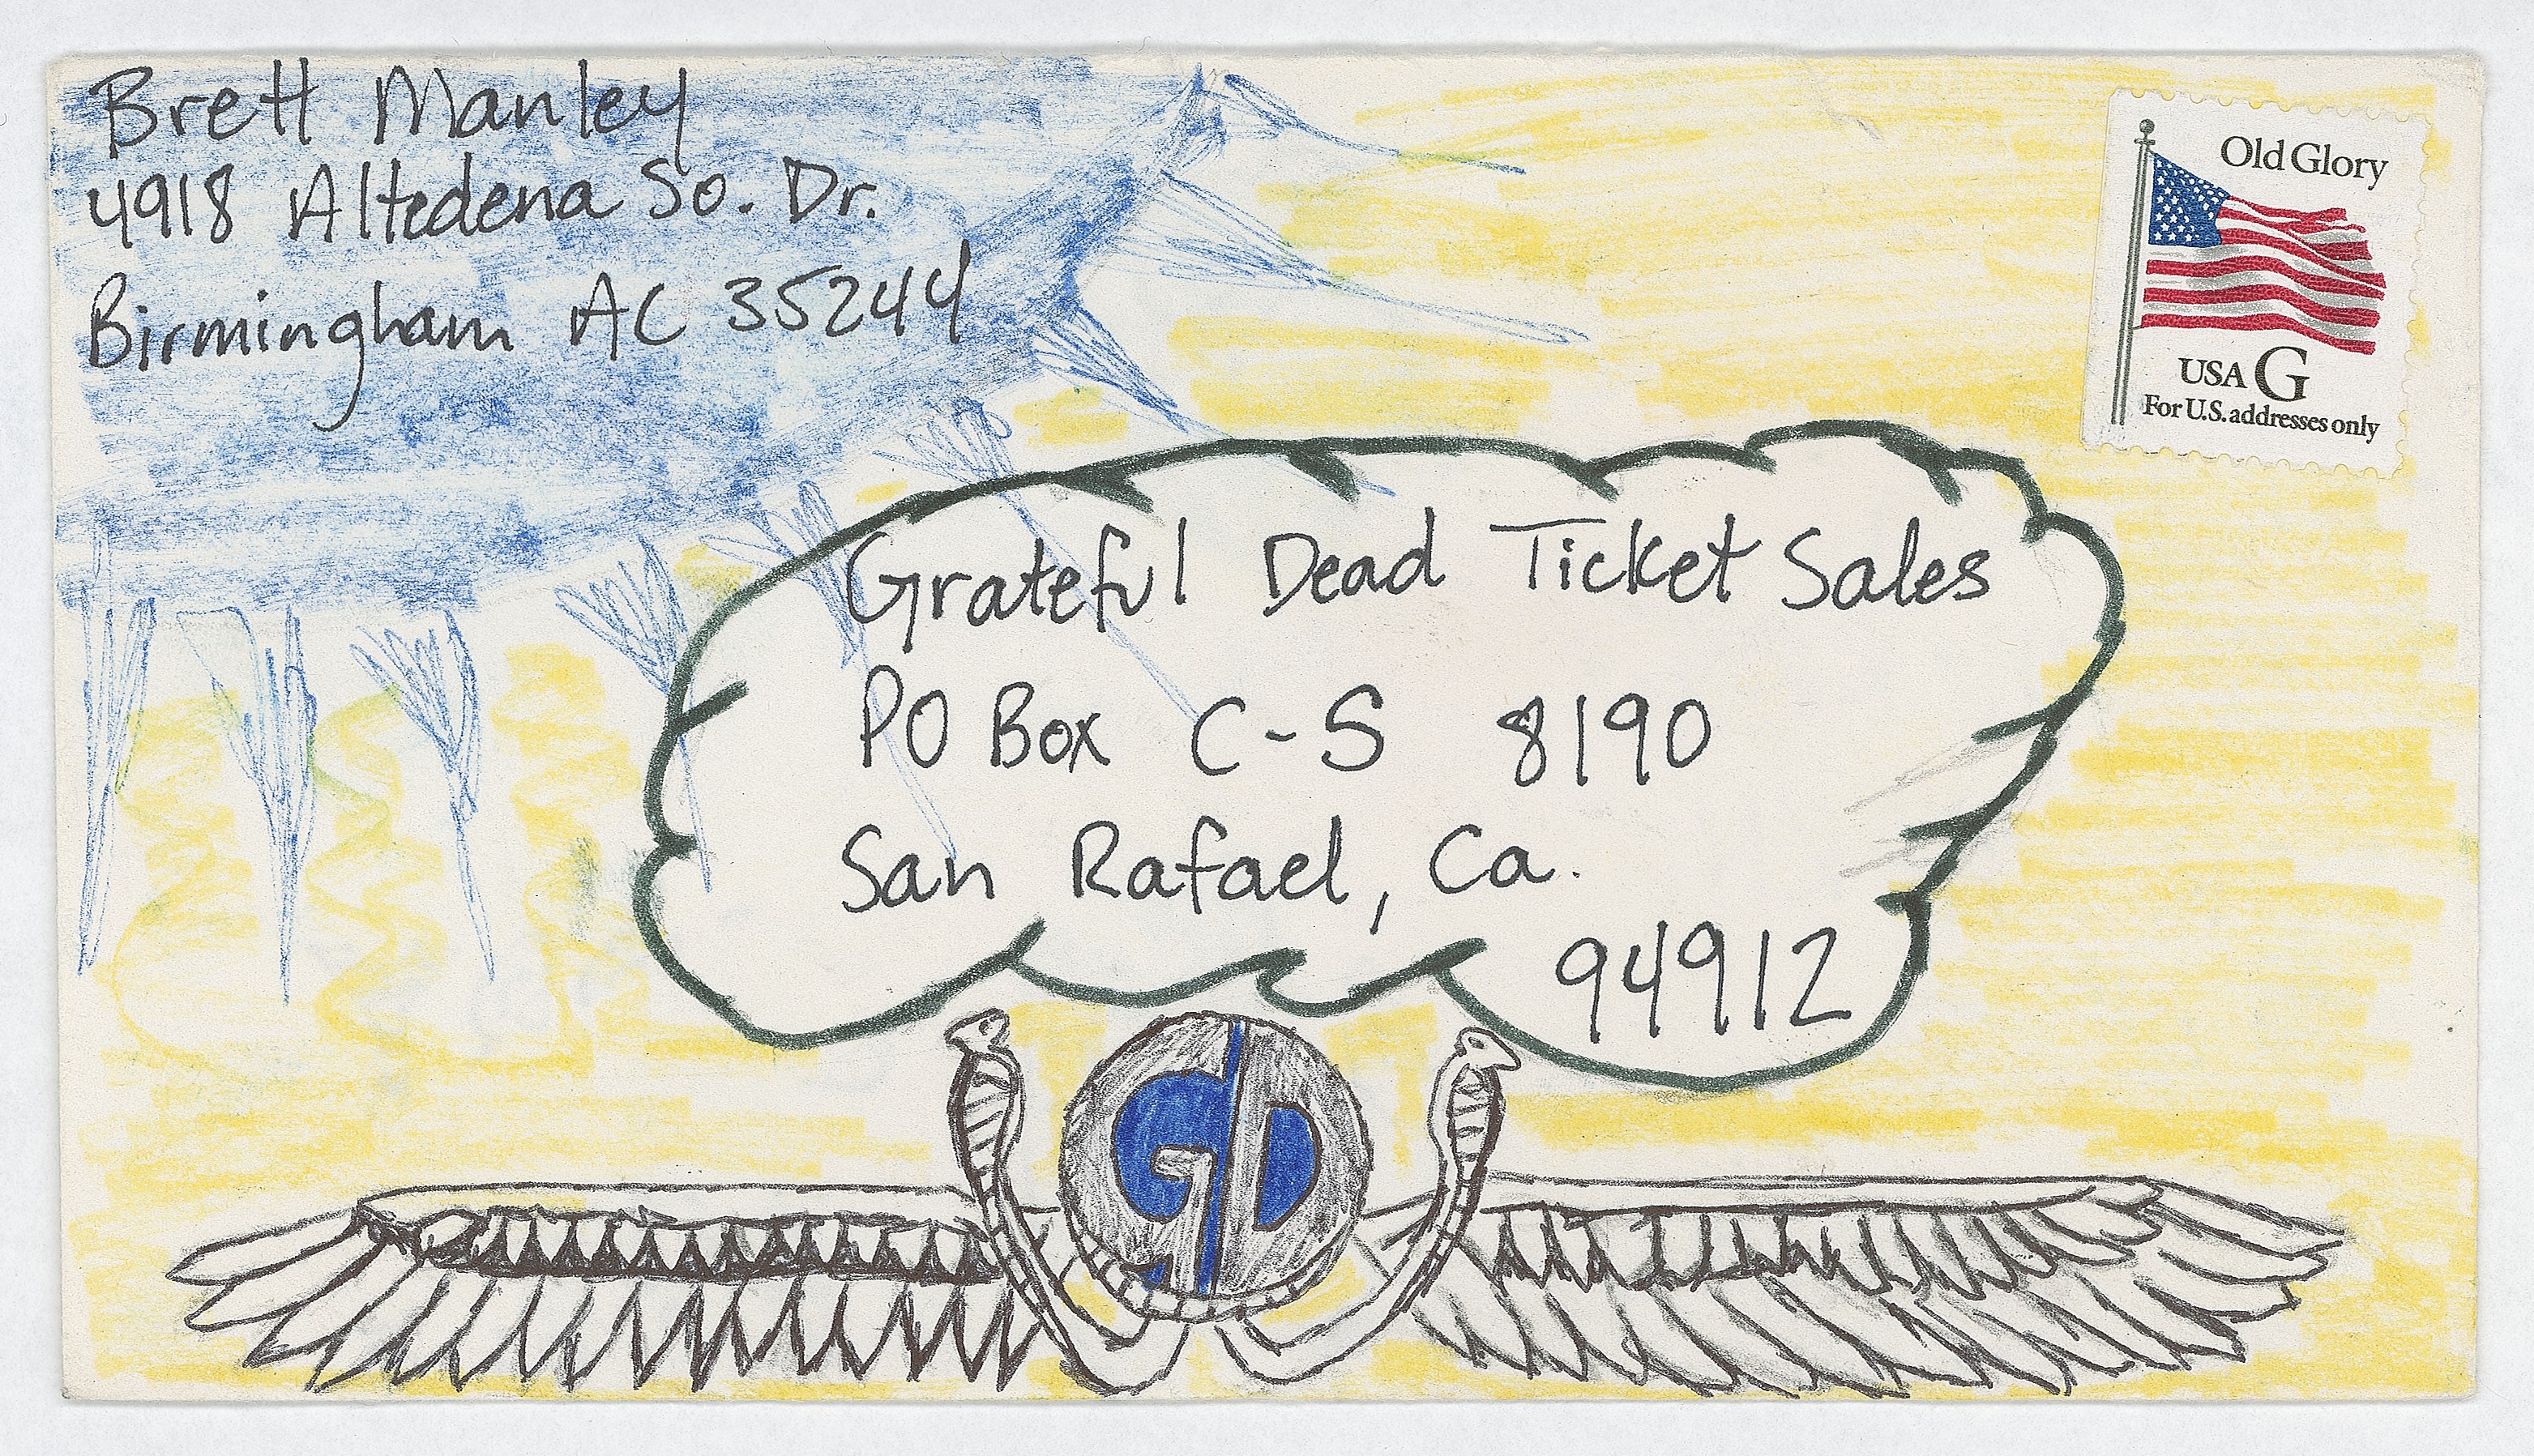 Brett Manley
4918 Altedena So. Dr.
Birmingham AC 35244
Old Glory
USA G
For U.S. addresses only
Grateful Dead Ticket Sales
PO Box C-S 8190
San Rafael, Ca.
94912
GD